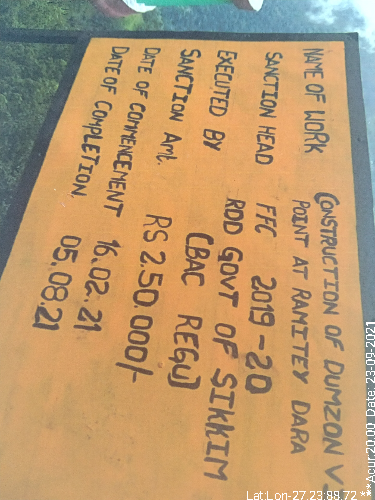 NAME OF WORK CONSTRUCTION OF DUMZON V
POINT AT RAMITEY DARA
SANCTION HEAD FFC 2019-20
EXECUTED BY RDD GOVT OF SIKKIM
(BAC REGU)
SANCTION Amt. RS 2,50,000/-
DATE OF COMMENCEMENT 16.02.21
DATE OF COMPLETION. 05.08.21
Lat:Lon-27 23:89.72 ***Acur:20.00, Date: 23-09-2021